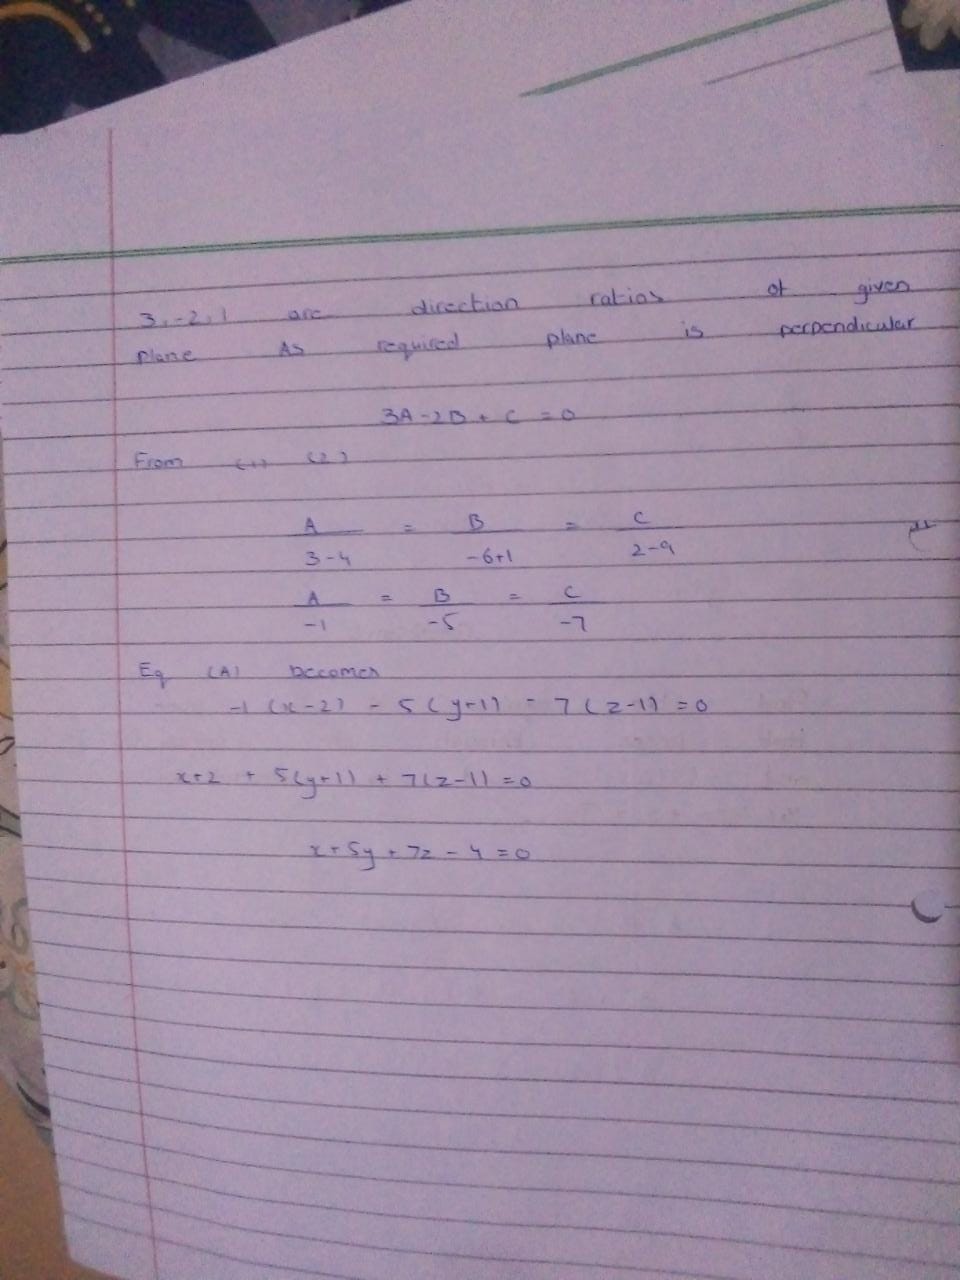 3, -2, 1 are direction ratios of given
plane As required plane is perpendicular
3A - 2B + C = 0
From (1) (2)
A/3-4 = B/-6+1 = C/2-9
A/-1 = B/-5 = C/-7
Eq (A) becomes
-1 (x-2) - 5 (y+1) - 7 (z-1) = 0
x+2 + 5(y+1) + 7(z-1) = 0
x + 5y + 7z - 4 = 0